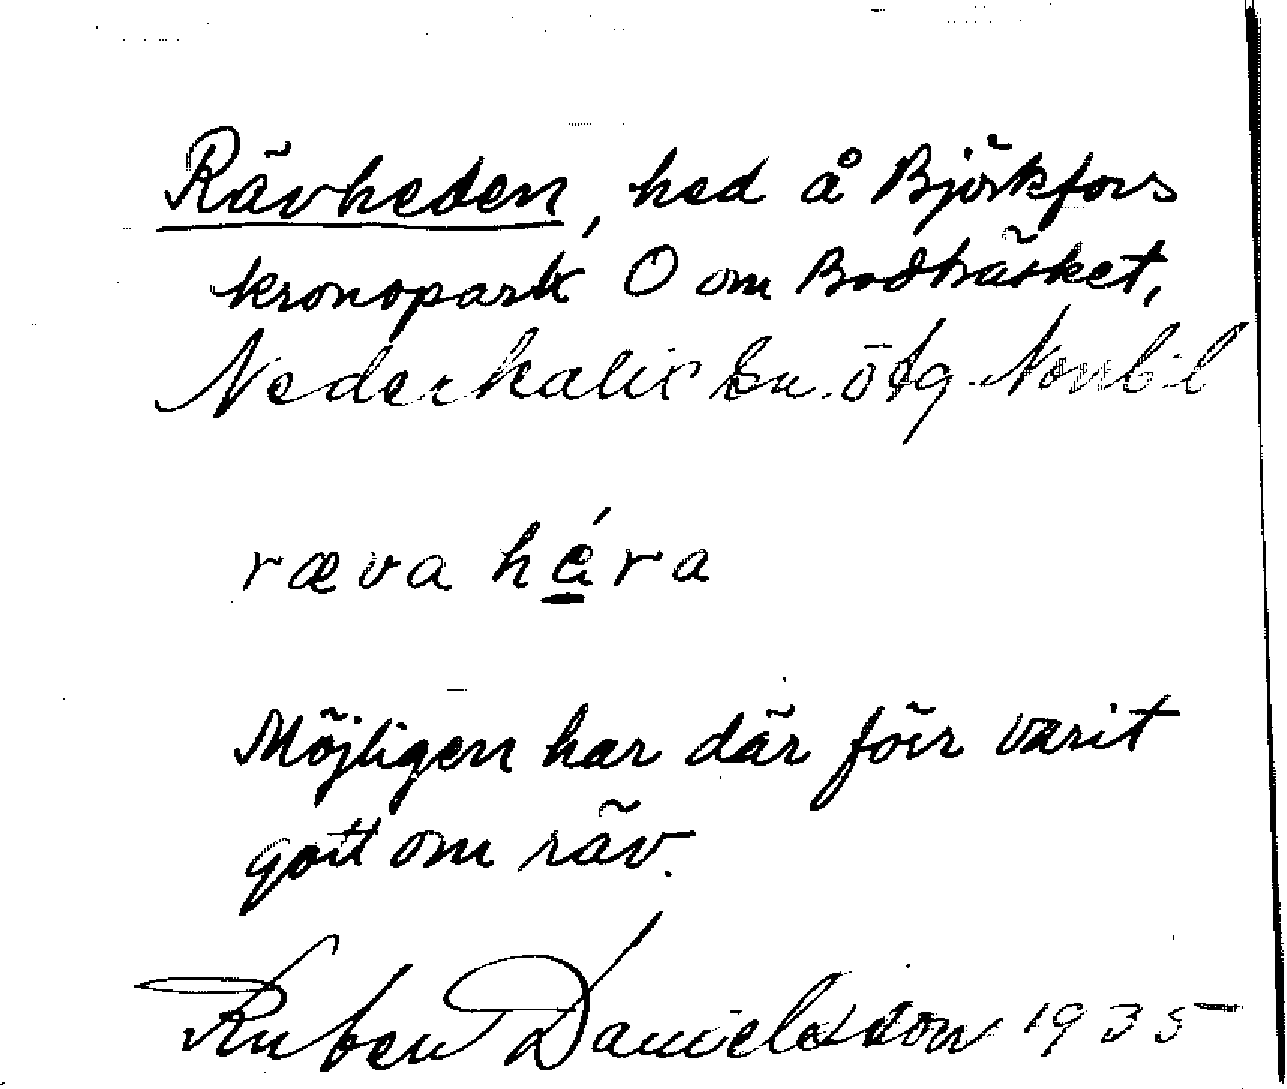 Rävheden, hed å Björkfors
kronopark O om Bodträsket,
Nederkalix sn. ötg. Nonb. l
ræva hára
Möjligen har där förr varit
gott om räv.
Ruben Danielsson 1935